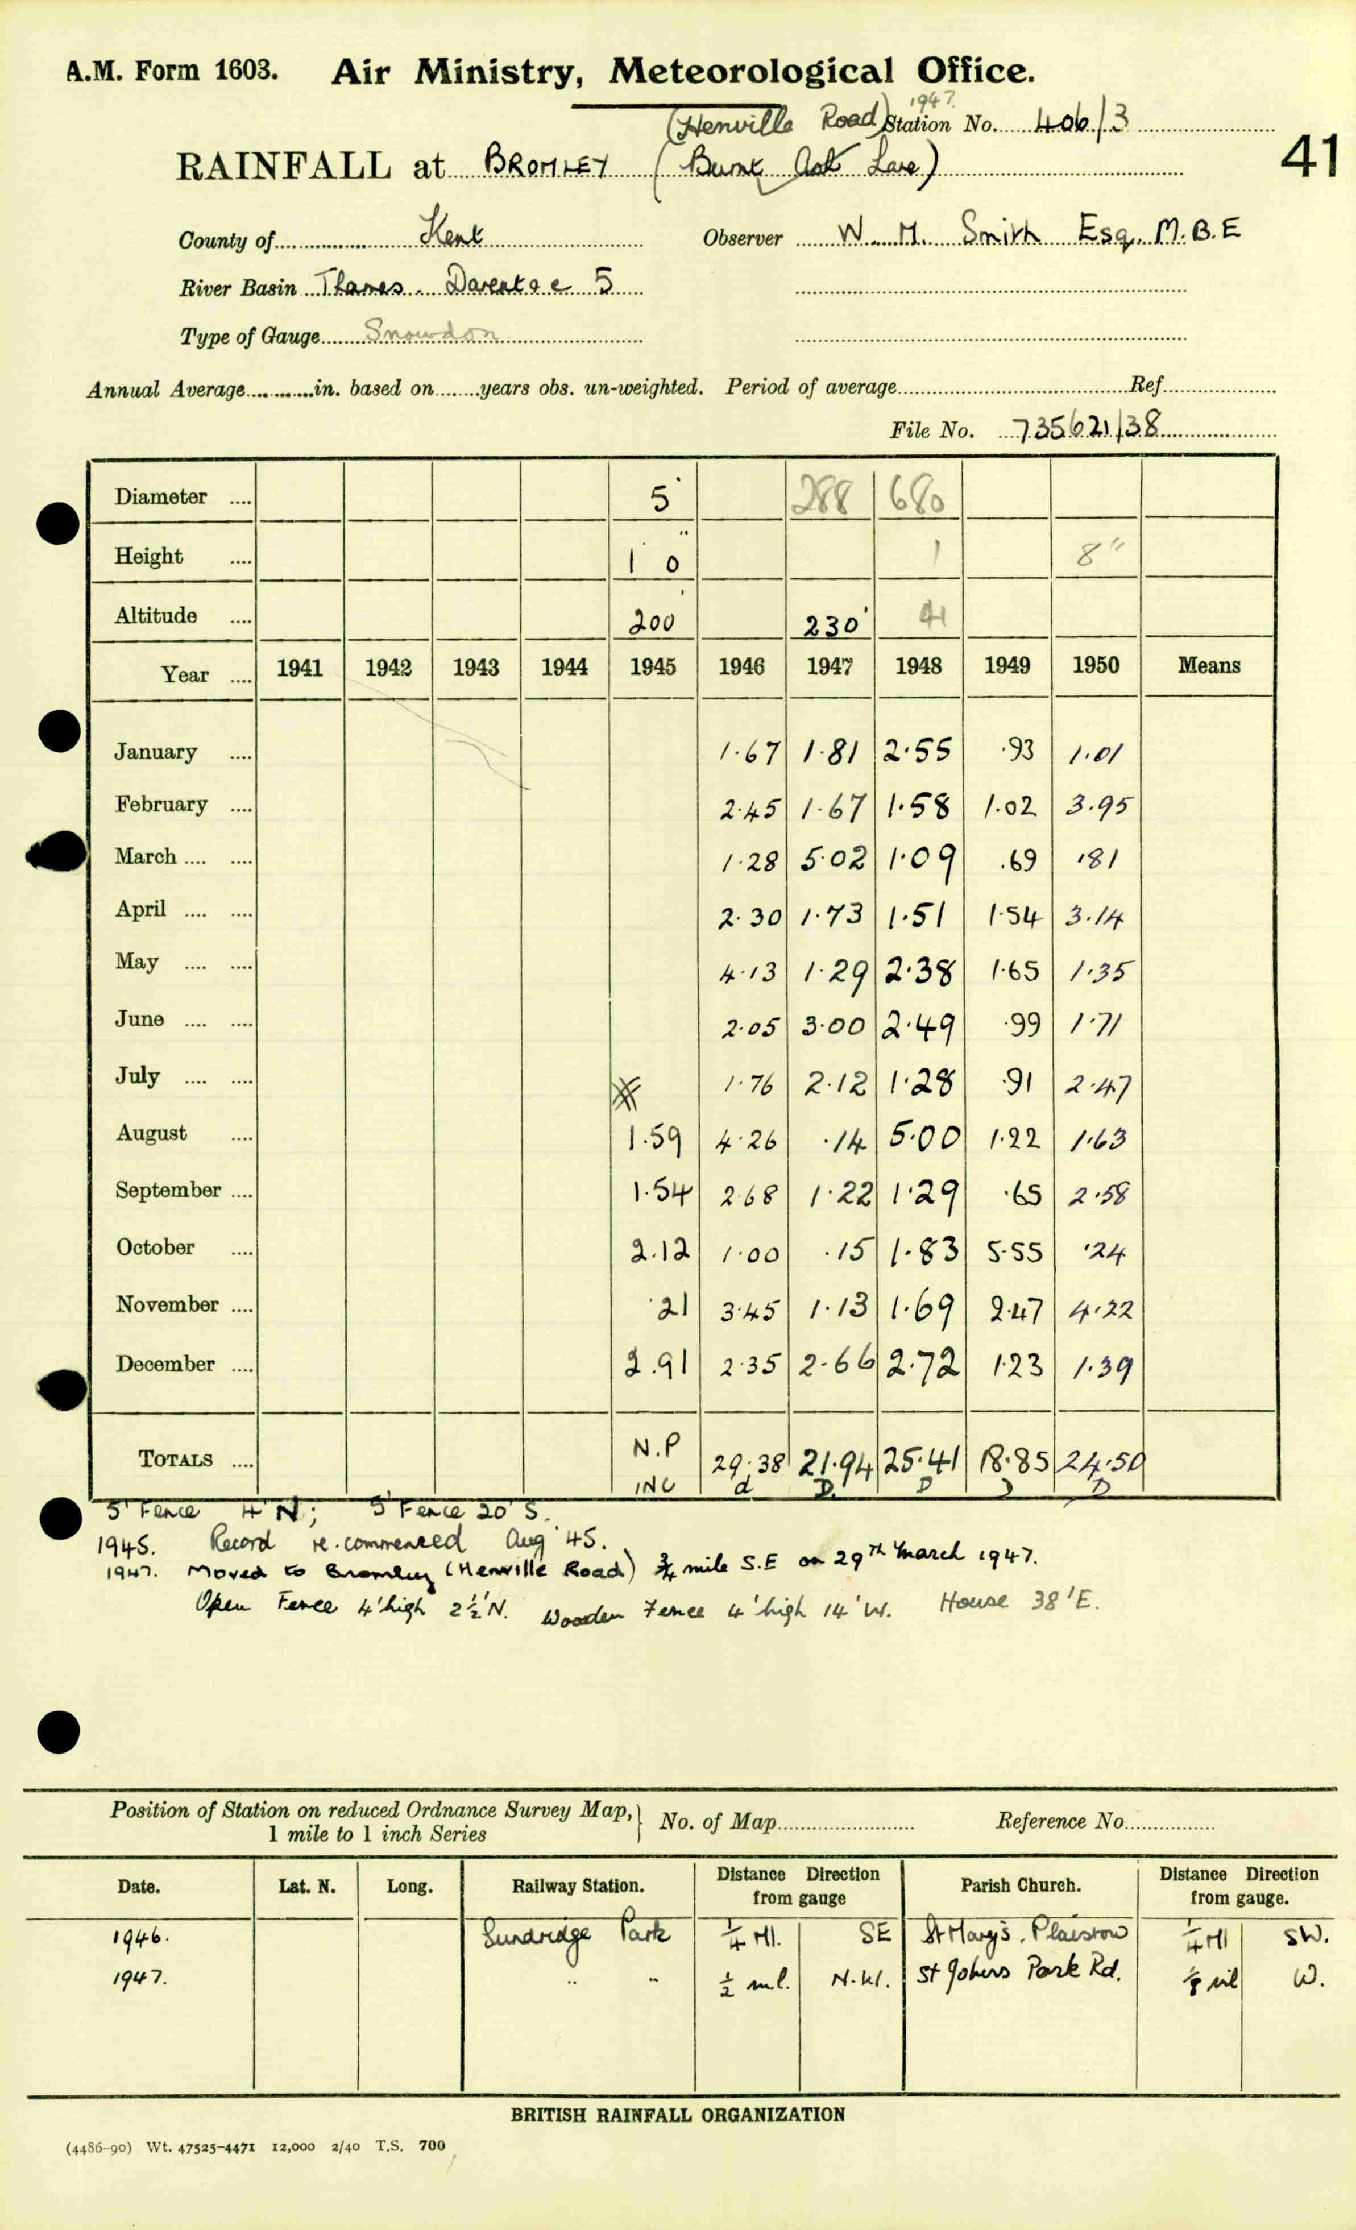 A.M. Form 1603. Air Ministry, Meteorological Office.
(Henville Road) 1947. Station No. 406/3
RAINFALL at BROMLEY (Burnt Ash Lane)
41
County of Kent Observer W. M. Smith Esq. M.B.E
River Basin Thames. 5
Type of Gauge Snowdon
Annual Average in. based on years obs. un-weighted. Period of average Ref.
File No. 735621/38
Diameter .... 5" 288 680
Height .... 1' 0" 1 8"
Altitude .... 200' 230' 41
Year .... 1941 1942 1943 1944 1945 1946 1947 1948 1949 1950 Means
January .... 1.67 1.81 2.55 .93 1.01
February .... 2.45 1.67 1.58 1.02 3.95
March .... .... 1.28 5.02 1.09 .69 .81
April .... .... 2.30 1.73 1.51 1.54 3.14
May .... .... 4.13 1.29 2.38 1.65 1.35
June .... .... 2.05 3.00 2.49 .99 1.71
July .... .... 1.76 2.12 1.28 .91 2.47
August .... 1.59 4.26 .14 5.00 1.22 1.63
September .... 1.54 2.68 1.22 1.29 .65 2.58
October .... 2.12 1.00 .15 1.83 5.55 .24
November .... .21 3.45 1.13 1.69 2.47 4.22
December .... 2.91 2.35 2.66 2.72 1.23 1.39
TOTALS .... N.P 29.38 21.94 25.41 18.85 24.50
INC d D. D D D
5' Fence 4' N; 5' Fence 20' S.
1945. Record re.commenced Aug '45.
1947. Moved to Bromley (Henville Road) 3/4 mile S.E on 29th March 1947.
Open Fence 4' high 2½' N. Wooden Fence 4' high 14' W. House 38' E.
Position of Station on reduced Ordnance Survey Map, } No. of Map Reference No.
1 mile to 1 inch Series
Date. Lat. N. Long. Railway Station. Distance Direction from gauge Parish Church. Distance Direction from gauge.
1946. Sundridge Park ¼ Ml. SE St Mary's. Plaistow ¼ Ml SW.
1947. " " ½ ml. N.W. St Johns Park Rd. ⅛ mil W.
BRITISH RAINFALL ORGANIZATION
(4486-90) Wt. 47525-4471 12,000 2/40 T.S. 700